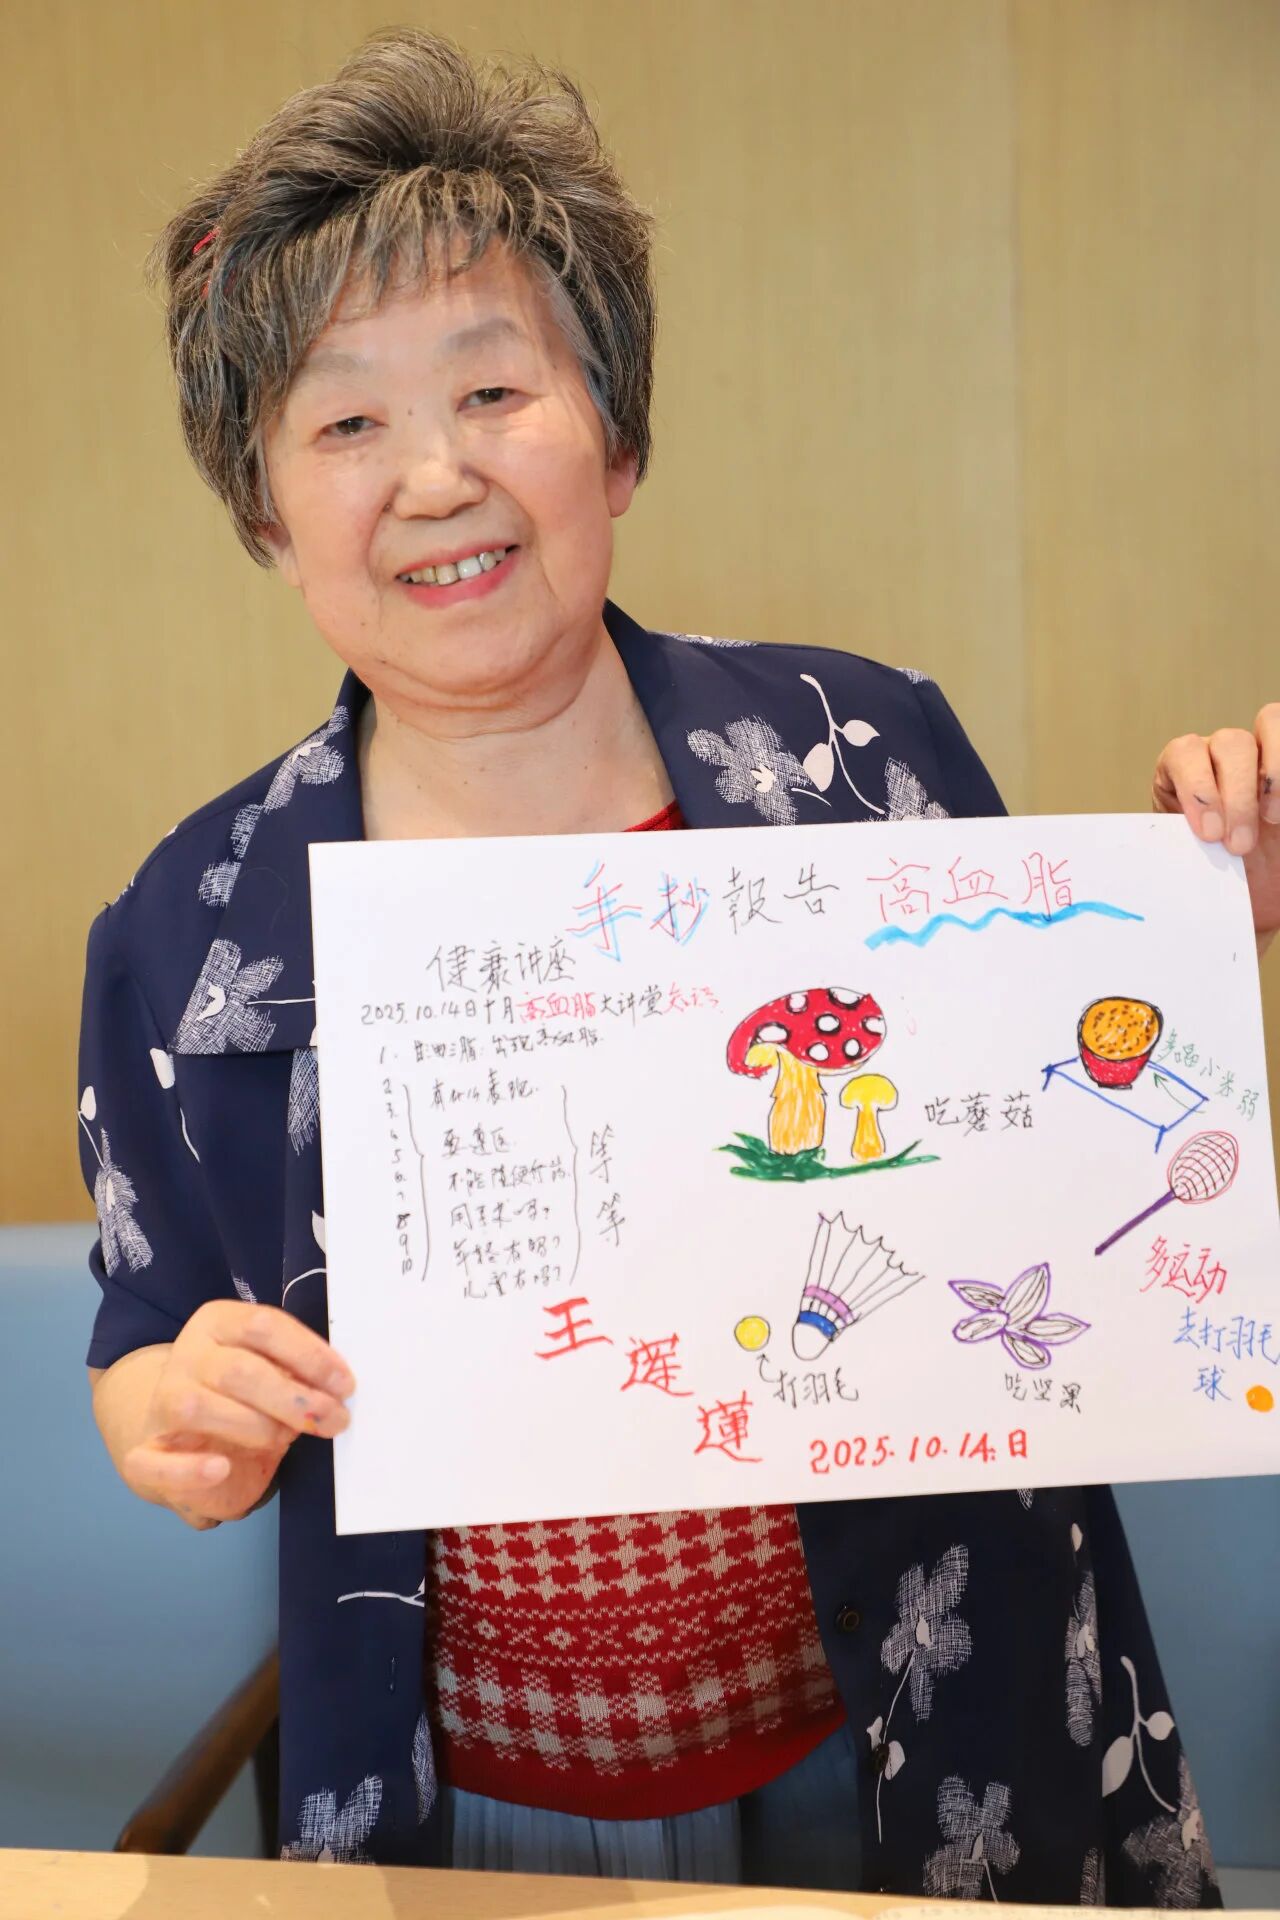 手抄報告 高血脂
健康讲座
2025.10.14日十月高血脂大讲堂知识
1. 甘油三脂:出现高血脂.
2 有什么表现.
3.
4 要遵医.
5 不能随便
6.
7
8
9 年轻有吗?
10 儿童有吗?
等等
吃蘑菇
多喝小米粥
多运动
去打羽毛
球
打羽毛
吃坚果
王
辉
蓮
2025.10.14.日